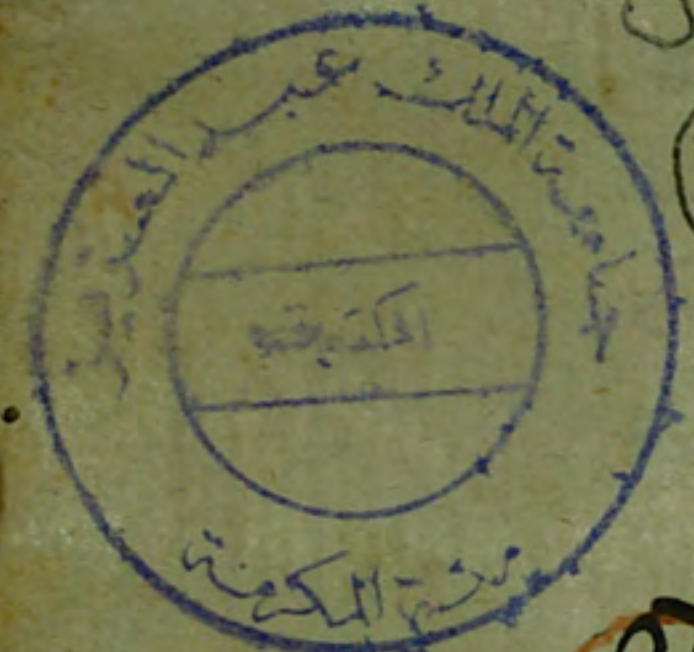 جامعة الملك عبد العزيز
مكة المكرمة